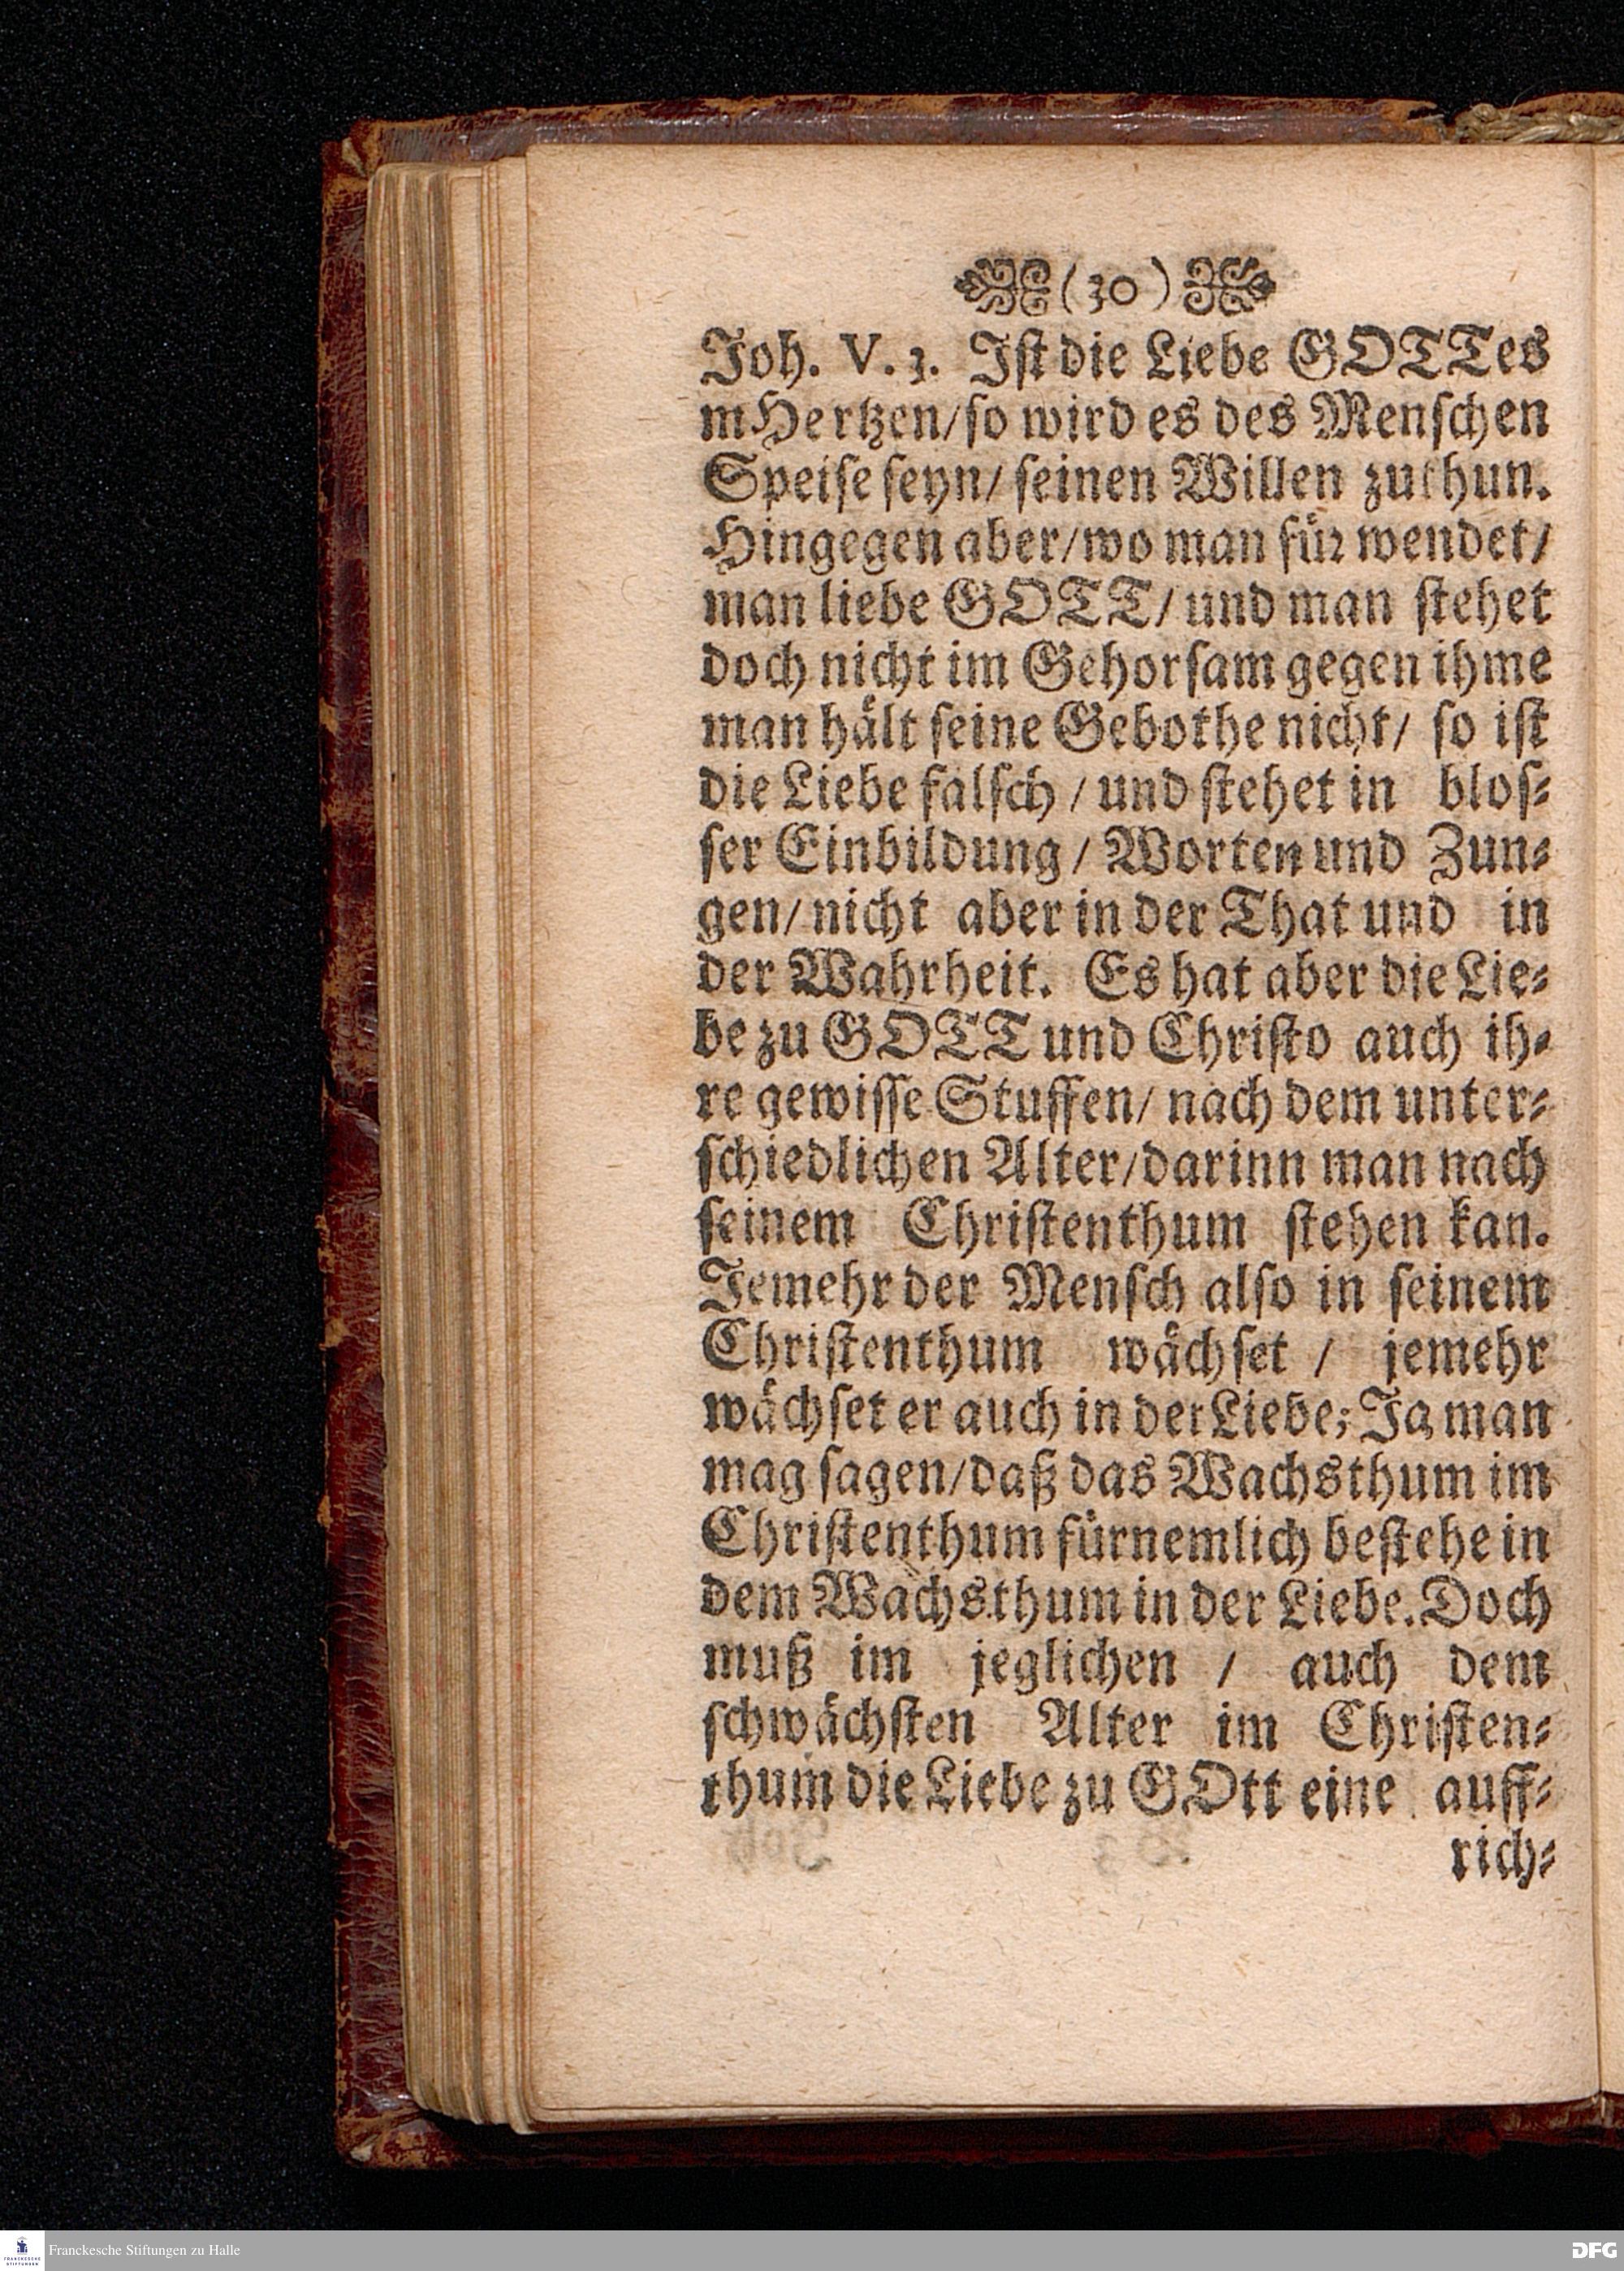 (30)
Joh. V. 3. Iſt die Liebe GOTTes
m Hertzen/ ſo wird es des Menſchen
Speiſe ſeyn/ ſeinen Willen zuthun.
Hingegen aber/ wo man für wendet/
man liebe GOTT/ und man ſtehet
doch nicht im Gehorſam gegen ihme
man hält ſeine Gebothe nicht/ ſo iſt
die Liebe falſch / und ſtehet in bloſ-
ſer Einbildung / Worten und Zun-
gen/ nicht aber in der That und in
der Wahrheit. Es hat aber die Lie-
be zu GOTT und Chriſto auch ih-
re gewiſſe Stuffen/ nach dem unter-
ſchiedlichen Alter/ darinn man nach
ſeinem Chriſtenthum ſtehen kan.
Jemehr der Menſch alſo in ſeinem
Chriſtenthum wächſet / jemehr
wächſet er auch in der Liebe; Ja man
mag ſagen/ daß das Wachsthum im
Chriſtenthum fürnemlich beſtehe in
dem Wachsthum in der Liebe. Doch
muß im jeglichen / auch dem
ſchwächſten Alter im Chriſten-
thum die Liebe zu GOtt eine auff-
rich-
FRANCKESCHE
STIFTUNGEN
Franckesche Stiftungen zu Halle
DFG